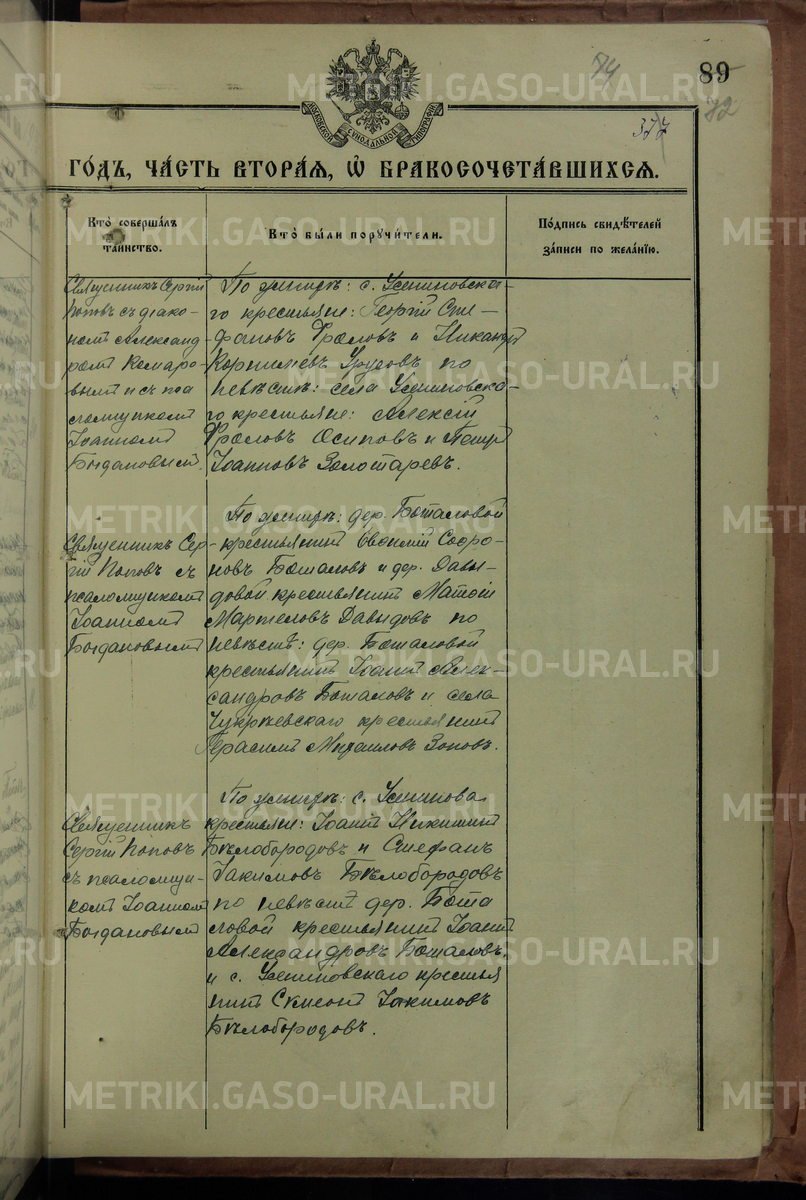 74
89
72
377
МОСКОВСКОЙ СѴНОДАЛЬНОЙ ТИПОГРАФІИ
ГО́ДЪ, ЧА́СТЬ ВТОРА́Я, Ѡ҆ БРАКОСОЧЕТА́ВШИХСЯ.
Кто̀ соверша́лъ
та́инство.
Кто̀ бы́ли порꙋчи́тели.
По́дпись свидѣ́телей
за́писи по жела́нїю.
Священникъ Сергій
Поповъ съ діако-
номъ Александ
ромъ Комаро-
вымъ и съ пса
ломщикомъ
Іоанномъ
Богдановымъ.
По женихѣ: с. Устиновска-
го крестьяне: Георгій Сте-
фановъ Фроловъ и Никандръ
Корнилiевъ Урусовъ по
невѣстѣ: села Устиновска-
го крестьяне: Алексій
Фроловъ Осиповъ и Петръ
Іоанновъ Золотаревъ.
Священникъ Сер-
гій Поповъ съ
псаломщикомъ
Іоанномъ
Богдановымъ
По женихѣ: дер. Боталовой
крестьянинъ Евѳимій Софро-
новъ Боталовъ и дер. Давы-
довой крестьянинъ Матѳій
Маркеловъ Давыдовъ по
невѣстѣ: дер. Боталовой
крестьянинъ Іоаннъ Алек-
сандровъ Боталовъ и села
крестьянинъ
Герасимъ Михаиловъ Зоповъ.
Священникъ
Сергій Поповъ
съ псаломщи-
комъ Іоанномъ
Богдановымъ
По женихѣ: с. Устинова
крестьяне: Іоаннъ Никитинъ
Бѣлобородовъ и Стефанъ
Іакимовъ Бѣлобородовъ
по невѣстѣ дер. Бота
ловой крестьянинъ Іоаннъ
Александровъ Боталовъ,
и с. Устиновскаго крестья
нинъ Симеонъ Іакимовъ
Бѣлобородовъ.
METRIKI.GASO-URAL.RU